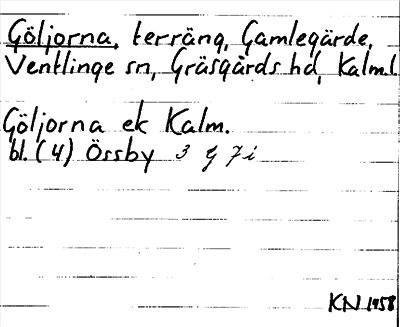 Göljorna, terräng, Gamlegärde,
Ventlinge sn, Gräsgårds hd, Kalm.l.
Göljorna ek Kalm.
bl. (4) Össby 3 G 7i
KN 1958